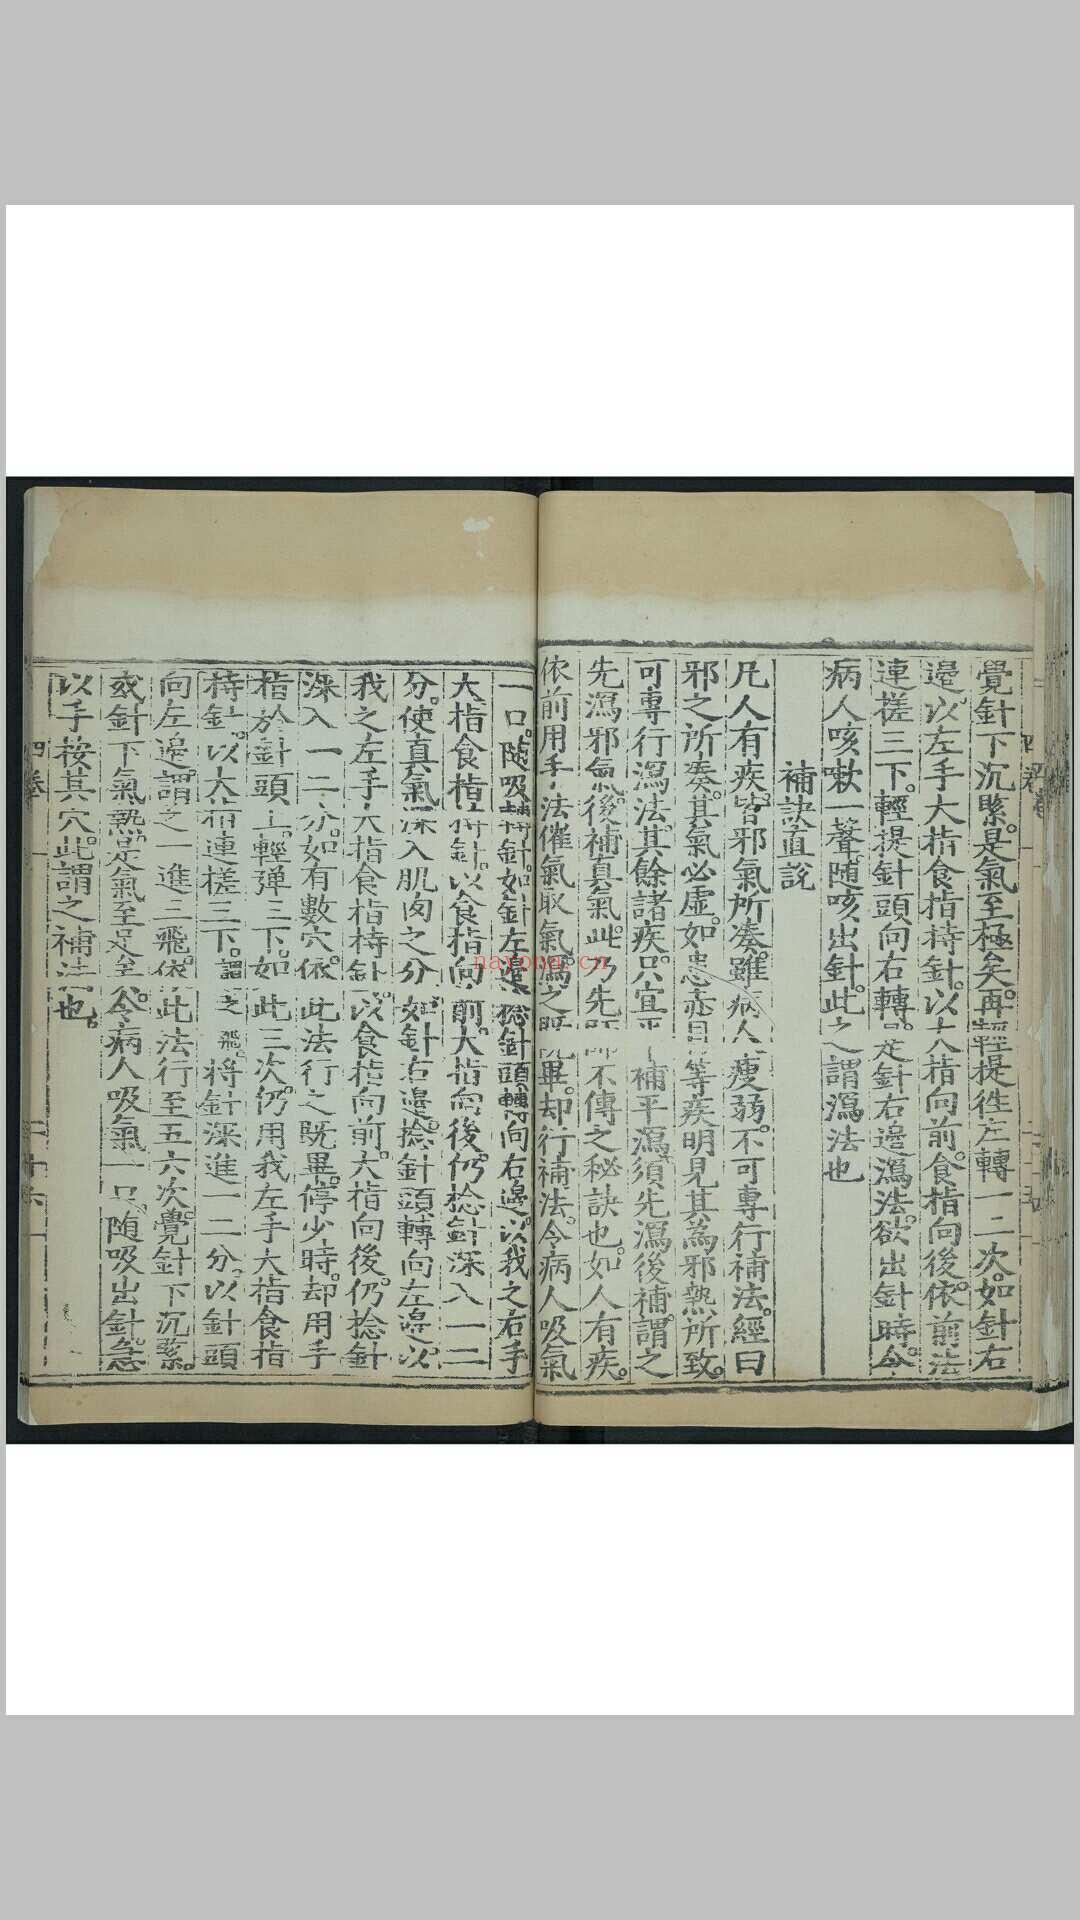 覺針下沉緊。是氣至極矣。再輕提徃左轉一二次。如針右
邊。以左手大指食指持針。以大指向前。食指向後。依前法
連搓三下。輕提針頭向右轉。是針右邊瀉法。欲出針時。令
病人咳嗽一聲。随咳出針。此之謂瀉法也
補訣直說
凡人有疾。皆邪氣所凑。雖病人瘦弱。不可專行補法。經曰
邪之所凑。其氣必虛。如患赤目等疾明見其為邪熱所致。
可專行瀉法。其餘諸疾。只宜平補平瀉。須先瀉後補。謂之
先瀉邪氣。後補真氣。此乃先師不傳之秘訣也。如人有疾。
依前用手法催氣取氣。瀉之既畢。却行補法。令病人吸氣
一口。隨吸轉針。如針左邊。捻針頭轉向右邊。以我之右手
大指食指持針。以食指向前。大指向後。仍捻針深入一二
分。使真氣深入肌肉之分。如針右邊。捻針頭轉向左邊。以
我之左手大指食指持針。以食指向前。大指向後。仍捻針
深入一二分。如有數穴。依此法行之既畢。停少時。却用手
指於針頭上。輕弹三下。如此三次。仍用我左手大指食指
持針。以大指連搓三下。謂之飛。將針深進一二分。以針頭
向左邊。謂之一進三飛。依此法行至五六次。覺針下沉緊。
或針下氣熱。是氣至足矣。令病人吸氣一口。随吸出針。急
以手按其穴。此謂之補法也。
四卷
nayona.cn